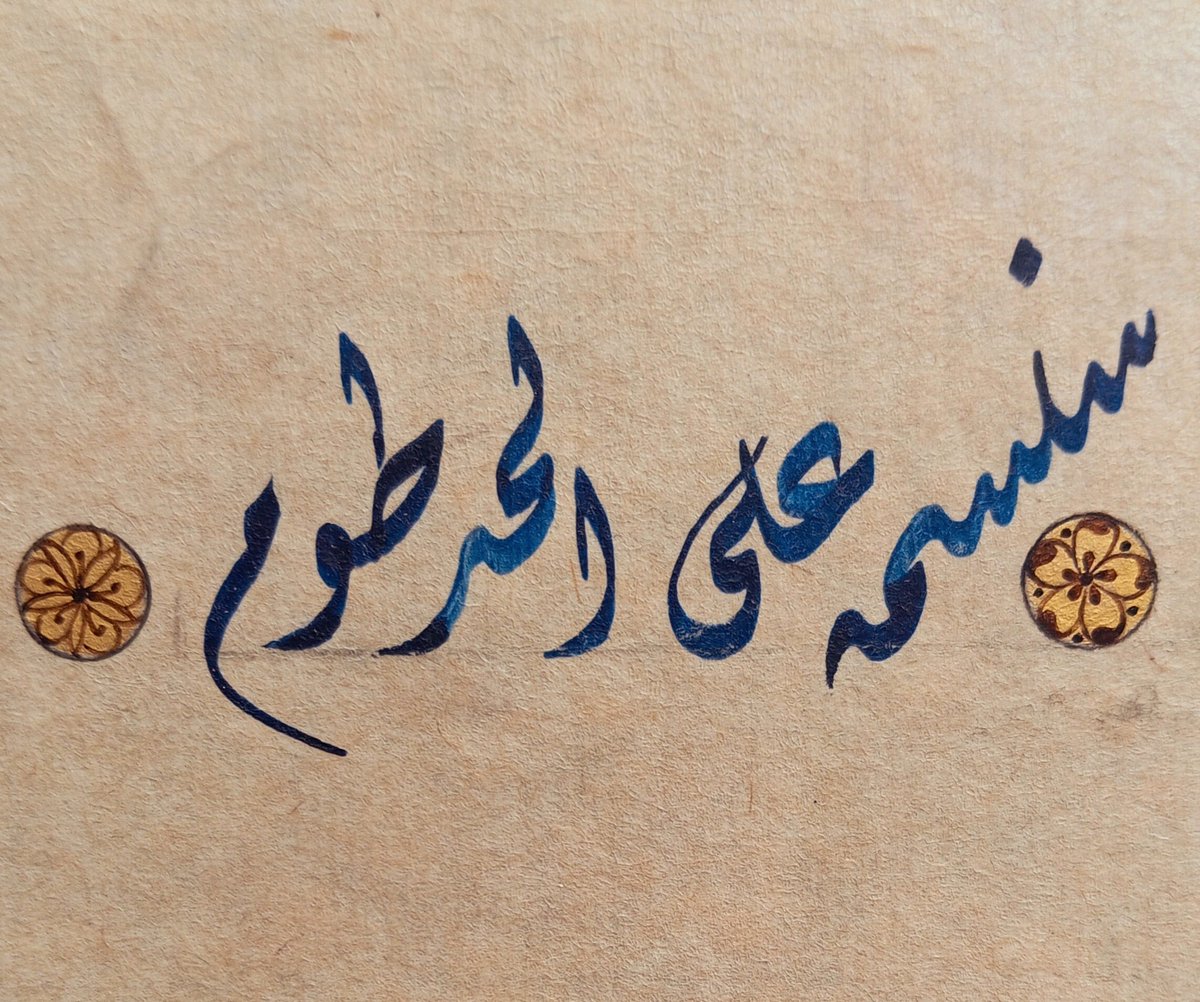 سنسمه على الخرطوم